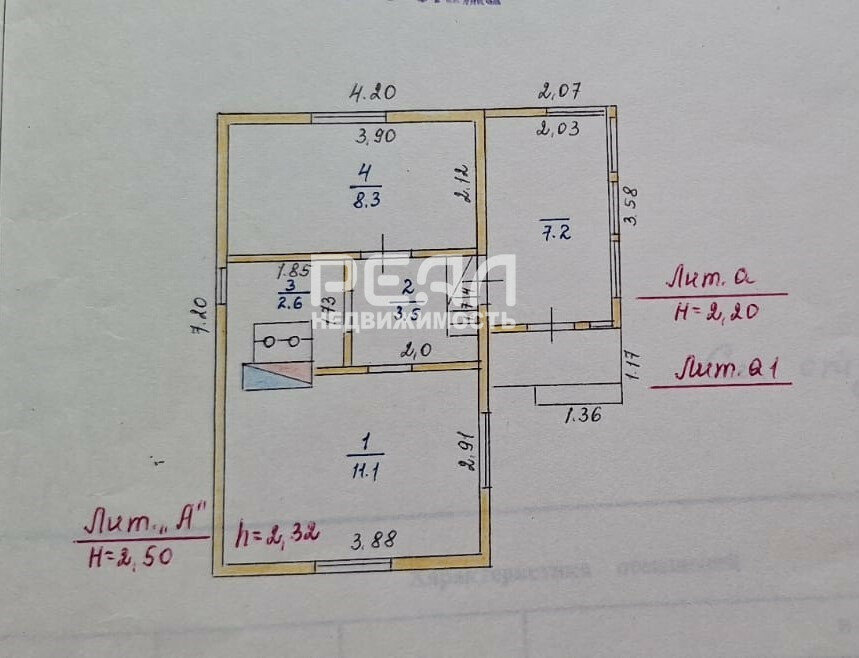 4.20
2,07
3,90
2,03
4
8.3
2.12
7.2
3.58
РЕАЛ
НЕДВИЖИМОСТЬ
1.85
3
2.6
2
3.5
7.20
2,0
Лит. а
H=2,20
1.17
Лит. а1
1.36
1
11.1
2,91
Лит. „А"
H=2,50
h=2,32
3.88
Характеристика